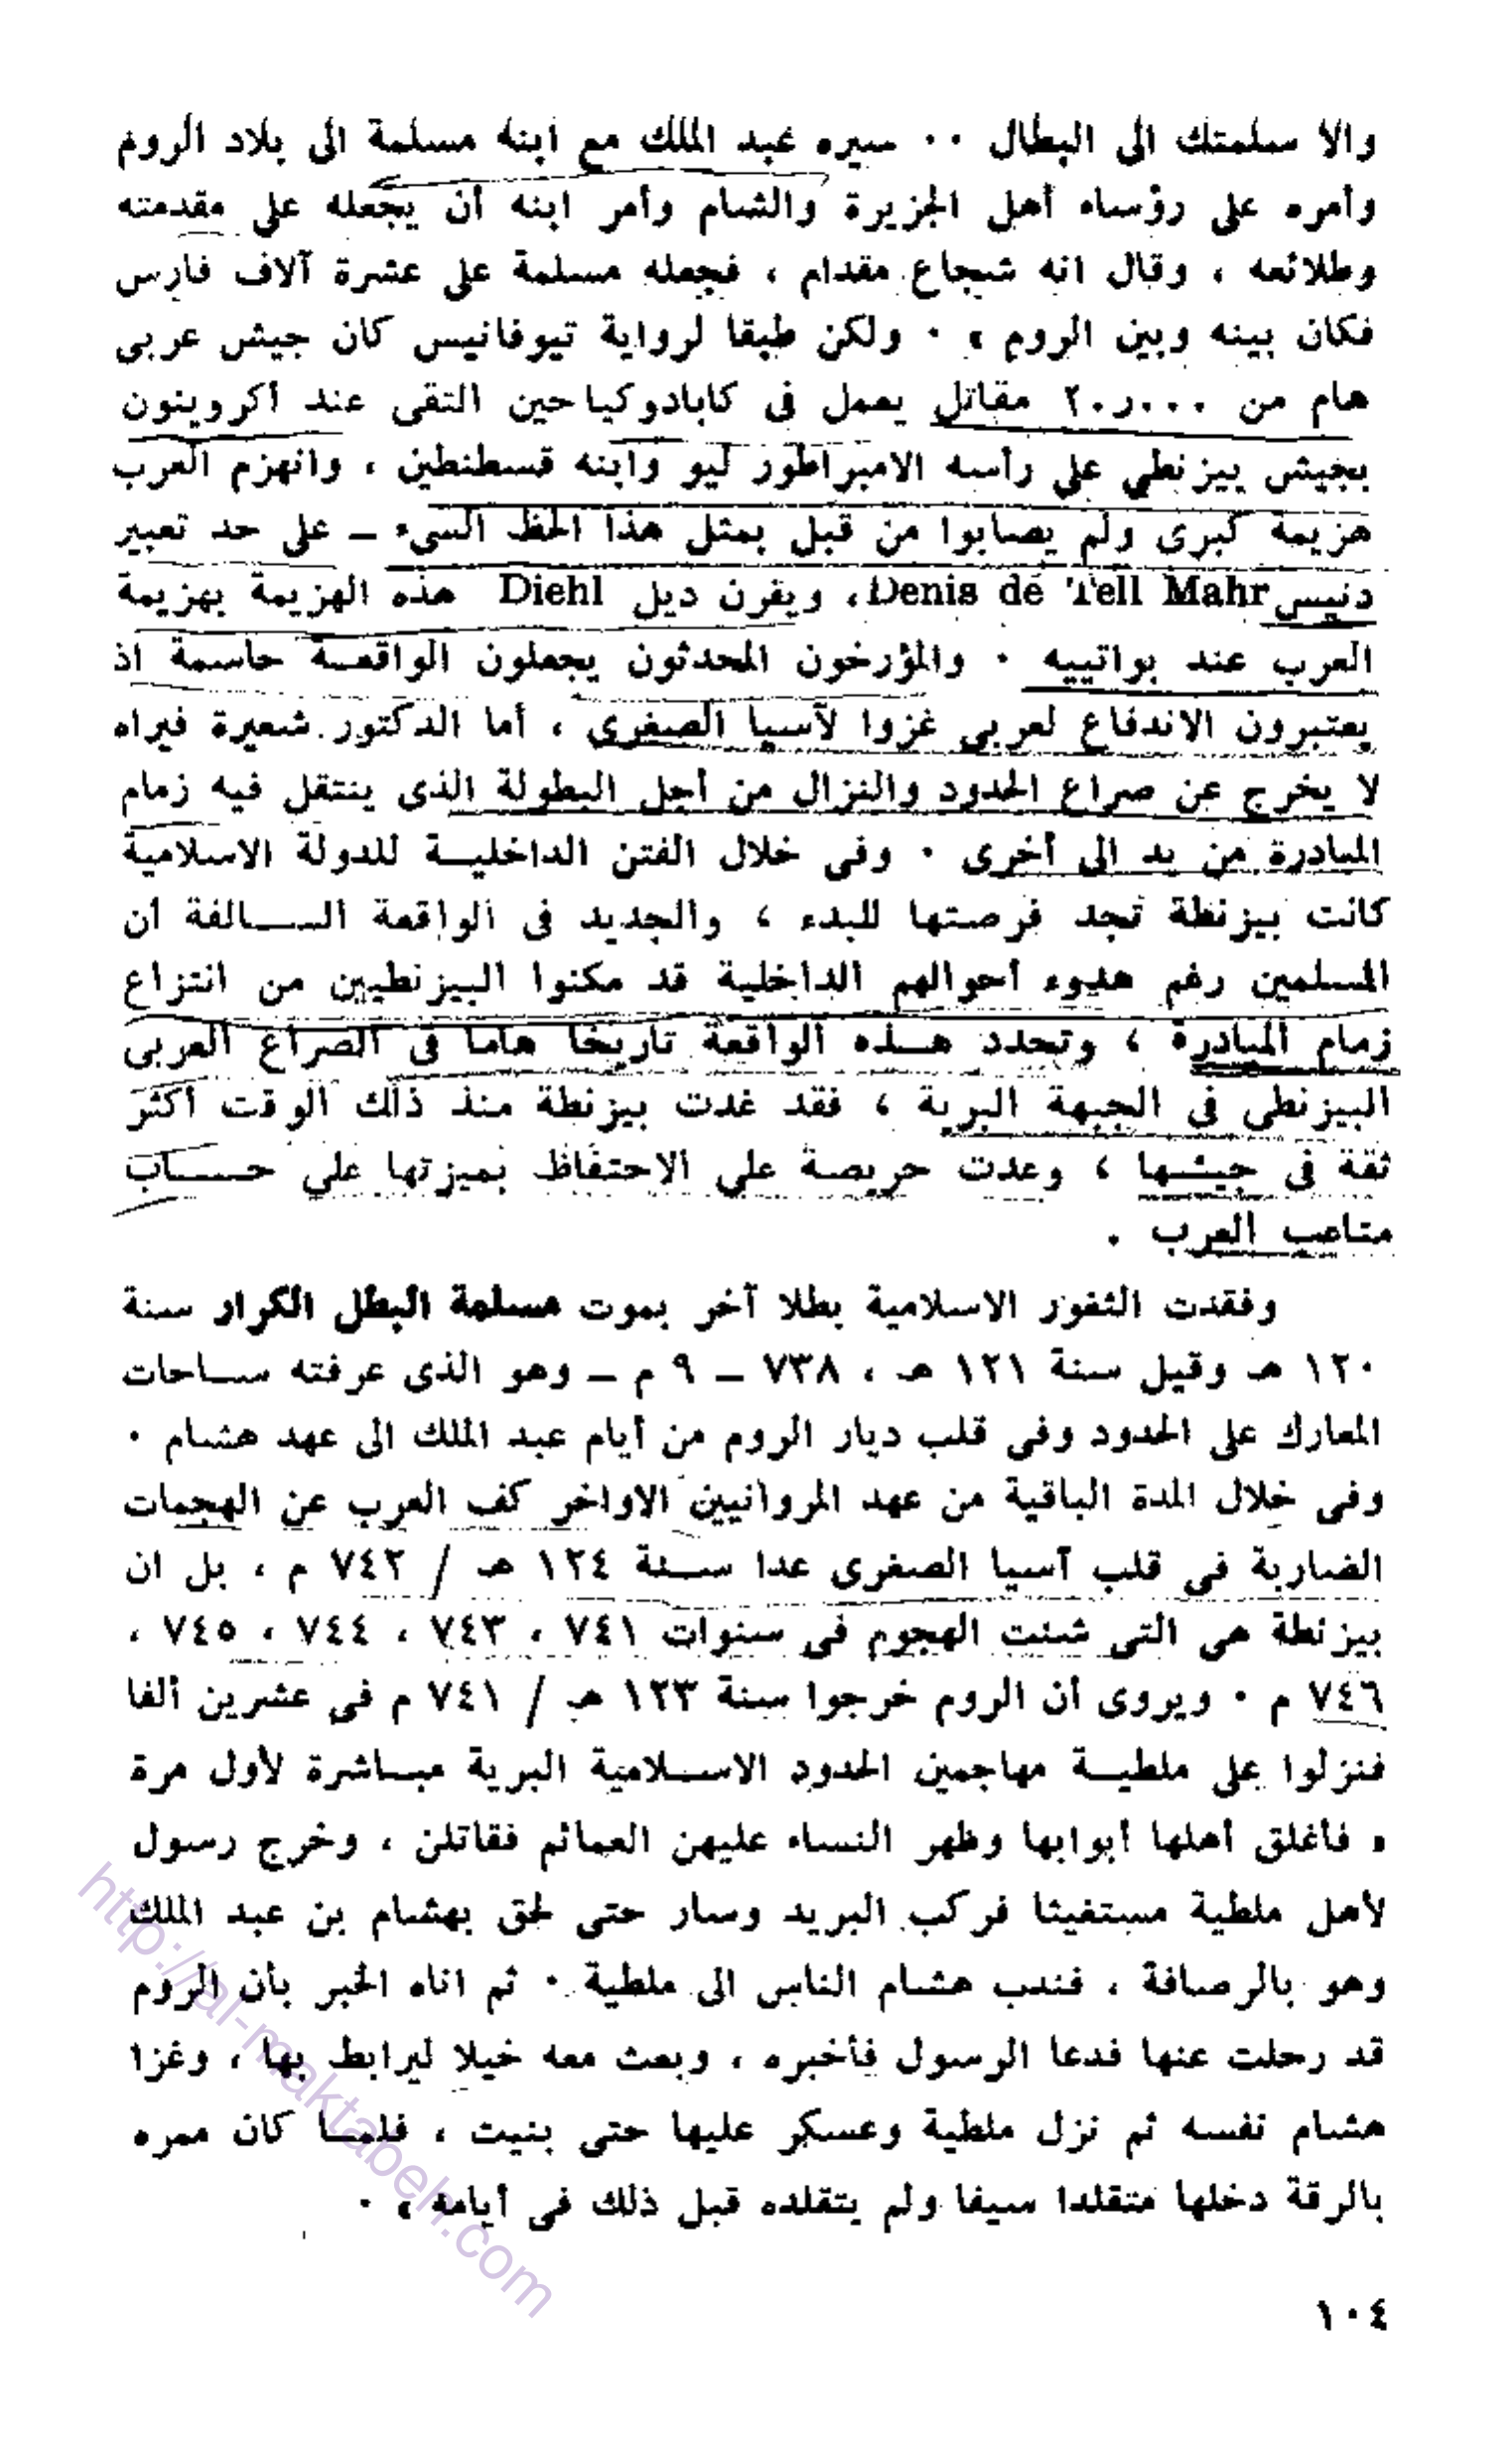 والا سلمتك الى البطال ٠٠ سيره عبد الملك مع ابنه مسلمة الى بلاد الروم
وأمره على رؤساء أهل الجزيرة والشام وأمر ابنه أن يجعله على مقدمته
وطلائعه ، وقال انه شجاع مقدام ، فجعله مسلمة على عشرة آلاف فارس
فكان بينه وبين الروم » ٠ ولكن طبقا لرواية تيوفانيس كان جيش عربى
هام من ٢٠٫٠٠٠ مقاتل يعمل فى كابادوكيا حين التقى عند أكروينون
بجيش بيزنطي على رأسه الامبراطور ليو وابنه قسطنطين ، وانهزم العرب
هزيمة كبرى ولم يصابوا من قبل بمثل هذا الحظ السىء – على حد تعبير
دنيس Denis de Tell Mahr، ويقرن ديل Diehl هذه الهزيمة بهزيمة
العرب عند بواتييه ٠ والمؤرخون المحدثون يجعلون الواقعة حاسمة اذ
يعتبرون الاندفاع لعربى غزوا لآسيا الصغرى ، أما الدكتور شعيرة فيراه
لا يخرج عن صراع الحدود والنزال من أجل البطولة الذى ينتقل فيه زمام
المبادرة من يد الى أخرى ٠ وفى خلال الفتن الداخلية للدولة الاسلامية
كانت بيزنطة تجد فرصتها للبدء ، والجديد فى الواقعة السالفة أن
المسلمين رغم هدوء أحوالهم الداخلية قد مكنوا البيزنطيين من انتزاع
زمام المبادرة ، وتحدد هذه الواقعة تاريخا هاما فى الصراع العربى
البيزنطى فى الجبهة البرية ، فقد غدت بيزنطة منذ ذلك الوقت أكثر
ثقة فى جيشها ، وعدت حريصة على الاحتفاظ بميزتها على حساب
متاعب العرب .
وفقدت الثغور الاسلامية بطلا آخر بموت مسلمة البطل الكرار سنة
١٢٠ هـ وقيل سنة ١٢١ هـ ، ٧٣٨ – ٩ م – وهو الذى عرفته ساحات
المعارك على الحدود وفى قلب ديار الروم من أيام عبد الملك الى عهد هشام ٠
وفى خلال المدة الباقية من عهد المروانيين الاواخر كف العرب عن الهجمات
الضاربة فى قلب آسيا الصغرى عدا سنة ١٢٤ هـ / ٧٤٢ م ، بل ان
بيزنطة هى التى شنت الهجوم فى سنوات ٧٤١ ، ٧٤٣ ، ٧٤٤ ، ٧٤٥ ،
٧٤٦ م ٠ ويروى أن الروم خرجوا سنة ١٢٣ هـ / ٧٤١ م فى عشرين ألفا
فنزلوا على ملطية مهاجمين الحدود الاسلامية البرية مباشرة لأول مرة
« فأغلق أهلها أبوابها وظهر النساء عليهن العمائم فقاتلن ، وخرج رسول
لأهل ملطية مستغيثا فركب البريد وسار حتى لحق بهشام بن عبد الملك
وهو بالرصافة ، فندب هشام الناس الى ملطية ٠ ثم اتاه الخبر بأن الروم
قد رحلت عنها فدعا الرسول فأخبره ، وبعث معه خيلا ليرابط بها ، وغزا
هشام نفسه ثم نزل ملطية وعسكر عليها حتى بنيت ، فلما كان ممره
بالرقة دخلها متقلدا سيفا ولم يتقلده قبل ذلك فى أيامه » ٠
١٠٤
http://al-maktabeh.com